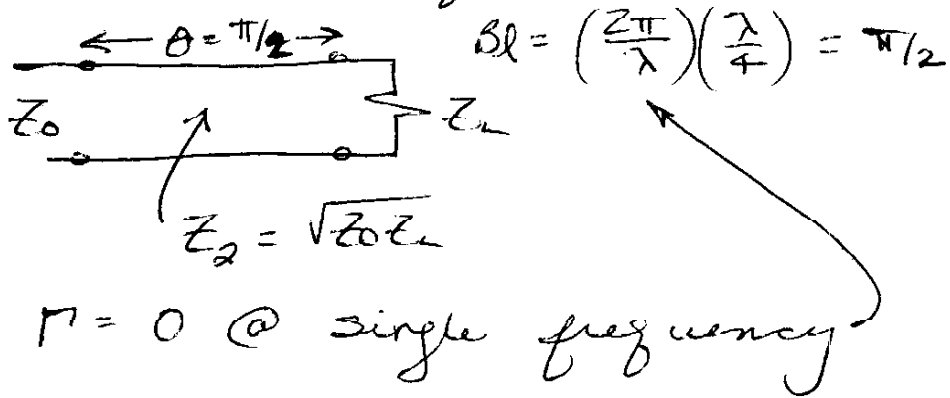 θ = π/2
βl = (2π/λ)(λ/4) = π/2
Z₀
Z_L
Z₂ = √Z₀Z_L
Γ = 0 @ single frequency